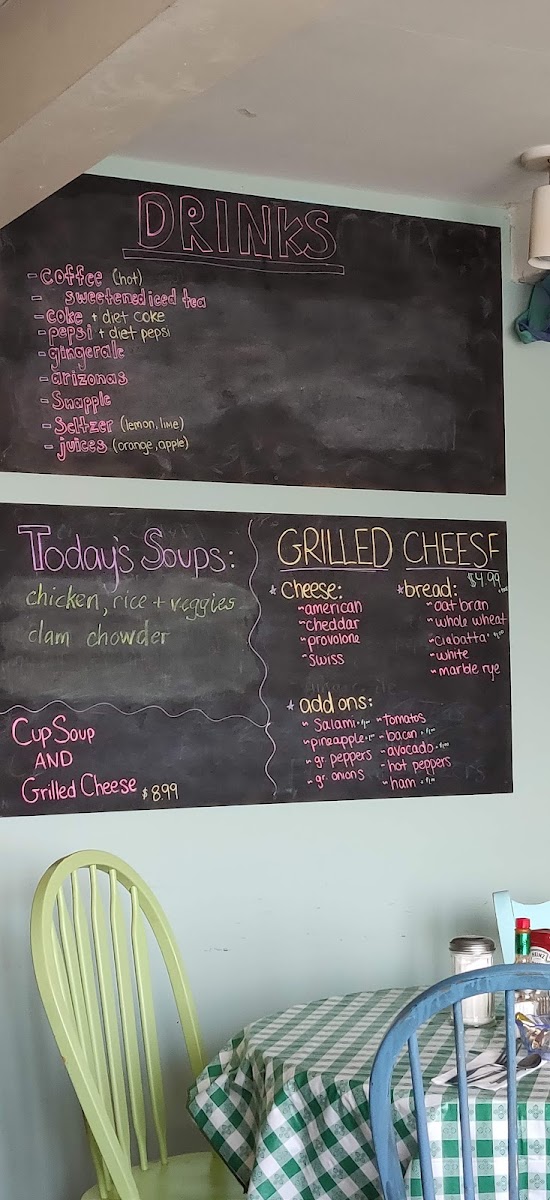 DRINKS
-coffee (hot)
- sweetened iced tea
-coke + diet coke
-pepsi + diet pepsi
-gingerale
-arizonas
-Snapple
-Seltzer (lemon, lime)
-juices (orange, apple)
Today's Soups:
chicken, rice + veggies
clam chowder
Cup Soup
AND
Grilled Cheese $8.99
GRILLED CHEESE
$4.99
*cheese:
~american
~cheddar
~provolone
~swiss
*bread:
~oat bran
~whole wheat
~ciabatta
~white
~marble rye
*add ons:
~Salami
~pineapple
~gr. peppers
~gr. onions
~tomatos
~bacon
~avocado
~hot peppers
~ham
HEINZ